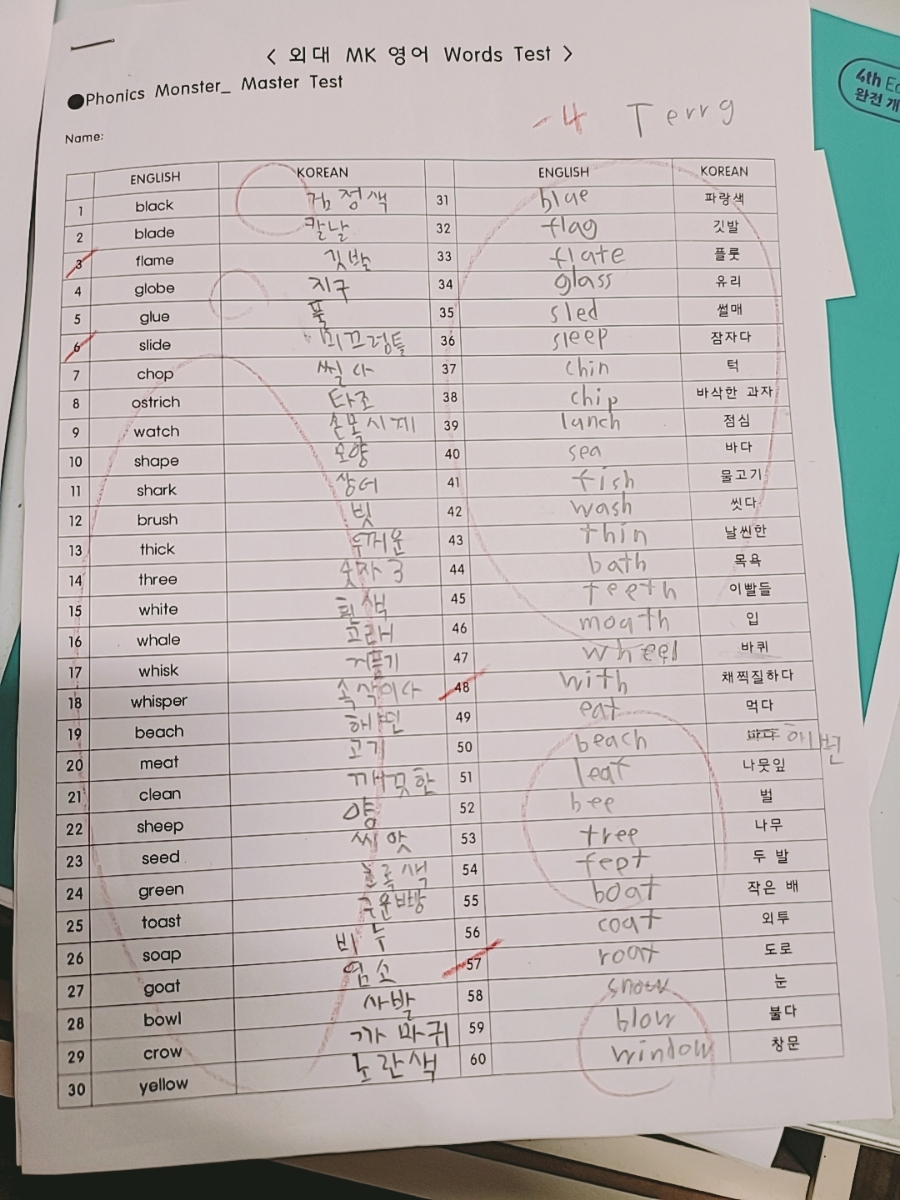 < 외대 MK 영어 Words Test >
●Phonics Monster_ Master Test
-4 Terry
Name:
4th
완전 개
ENGLISH KOREAN ENGLISH KOREAN
1 black 검정색 31 blue 파랑색
2 blade 칼날 32 flag 깃발
3 flame 깃발 33 flate 플룻
4 globe 지구 34 glass 유리
5 glue 풀 35 sled 썰매
6 slide 미끄럼틀 36 sleep 잠자다
7 chop 썰다 37 chin 턱
8 ostrich 타조 38 chip 바삭한 과자
9 watch 손목시계 39 lunch 점심
10 shape 모양 40 sea 바다
11 shark 상어 41 fish 물고기
12 brush 빗 42 wash 씻다
13 thick 두꺼운 43 thin 날씬한
14 three 숫자 3 44 bath 목욕
15 white 흰색 45 teeth 이빨들
16 whale 고래 46 mouth 입
17 whisk 거품기 47 wheel 바퀴
18 whisper 속삭이다 48 with 채찍질하다
19 beach 해변 49 eat 먹다
20 meat 고기 50 beach 해변
21 clean 깨끗한 51 leaf 나뭇잎
22 sheep 양 52 bee 벌
23 seed 씨앗 53 tree 나무
24 green 초록색 54 feet 두 발
25 toast 구운빵 55 boat 작은 배
26 soap 비누 56 coat 외투
27 goat 염소 57 roat 도로
28 bowl 사발 58 snow 눈
29 crow 까마귀 59 blow 불다
30 yellow 노란색 60 window 창문